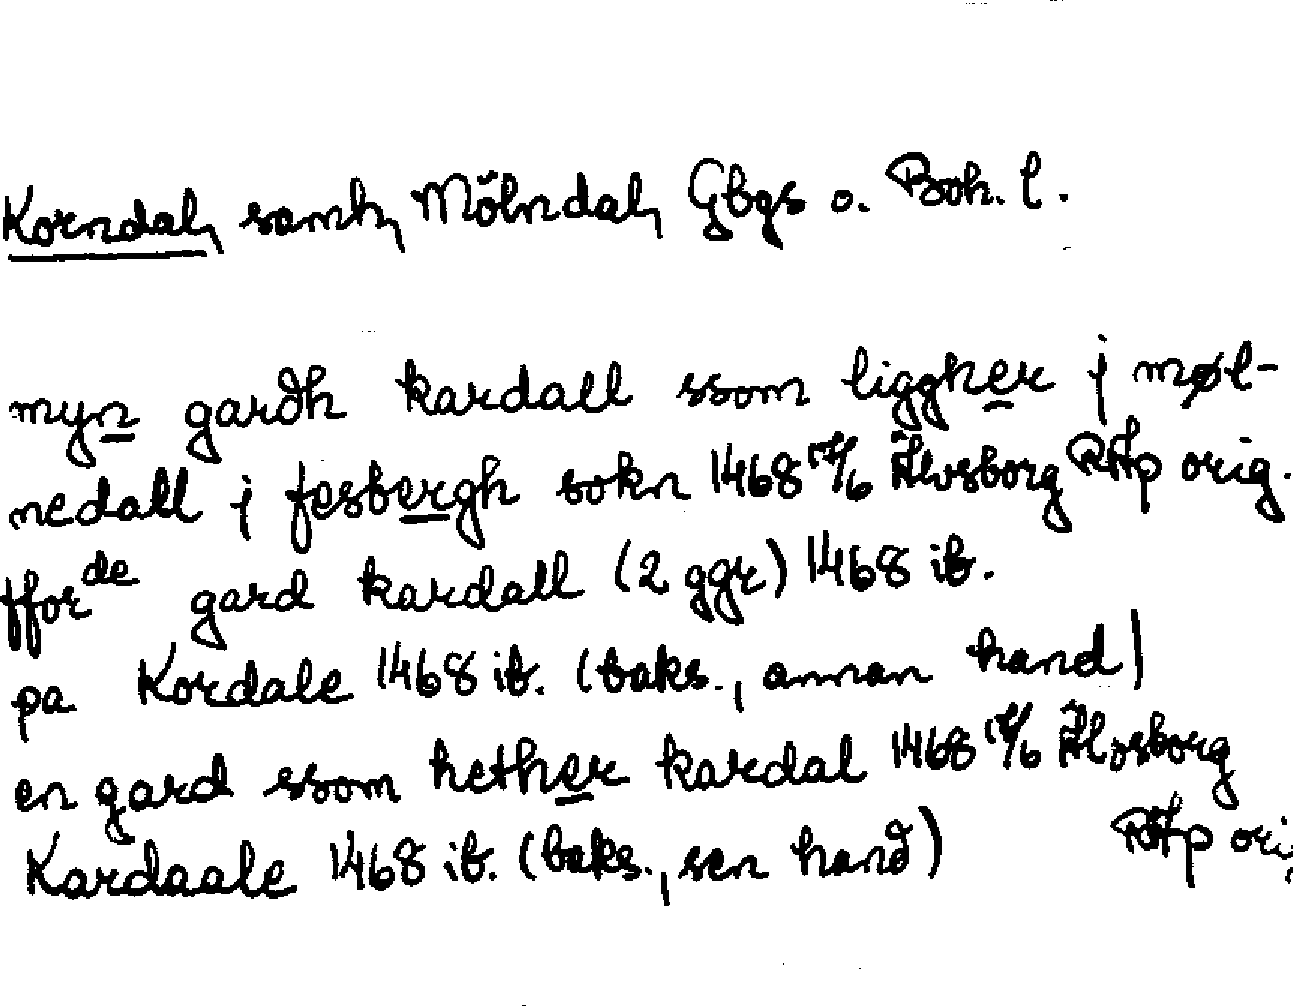 Korndal, samh, Mölndal, Gbgs o. Boh. l.
myn gardh kardall ssom liggher j møl-
nedall j fesbergh sokn 1468 17/6 Älvsborg RAp orig.
fforde gard kardall (2 ggr) 1468 ib.
pa Kordale 1468 ib. (baks., annan hand)
en gard ssom hether kardal 1468 17/6 Älvsborg
Kardaale 1468 ib. (baks., sen hand) RAp ori